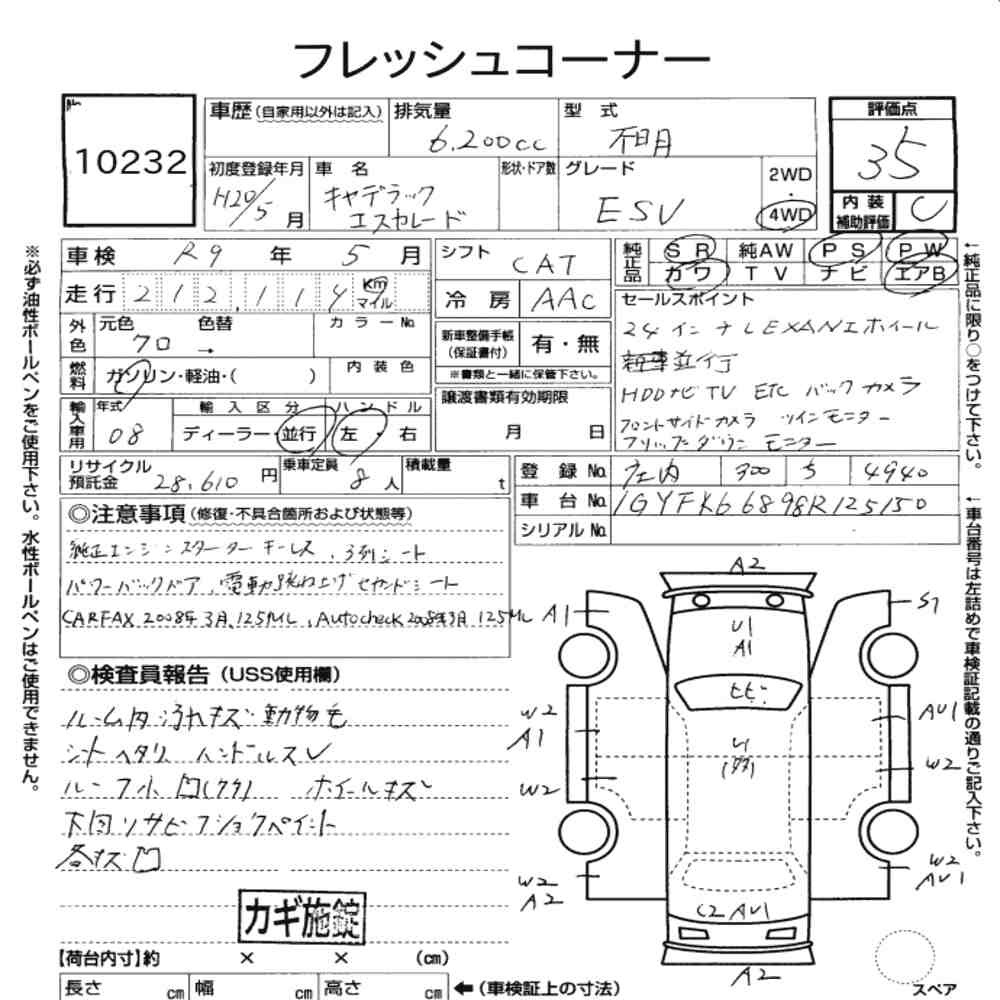 フレッシュコーナー
10232
車歴(自家用以外は記入) 排気量 6,200cc 型式 不明 評価点 35
初度登録年月 H20/5月 車名 キャデラック エスカレード 形状・ドア数 グレード ESV 2WD・4WD 内装補助評価 C
車検 R9年5月 シフト CAT 純正品 SR 純AW PS PW
カワ TV ナビ エアB
走行 212,114 km マイル 冷房 AAC
セールスポイント
外色 元色 色替 カラーNo. クロ → 新車整備手帳(保証書付) 有・無
24インチLEXANIホイール
新車並行
燃料 ガソリン・軽油・( ) 内装色 ※書類と一緒に保管下さい。
HDDナビTV ETC バックカメラ
輸入車用 年式 08 輸入区分 ディーラー・並行 ハンドル 左・右 譲渡書類有効期限 月 日
フロントサイドカメラ ツインモニター
フリップダウンモニター
リサイクル預託金 28,610円 乗車定員 8人 積載量 t
登録No. 庄内 300 ち 4940
車台No. 1GYFK66898R125150
シリアルNo.
◎注意事項(修復・不具合箇所および状態等)
純正エンジンスターターキーレス、3列シート
パワーバックドア、電動跳ね上げセカンドシート
CARFAX 2008年3月,125ML、Autocheck 2008年3月 125ML
◎検査員報告(USS使用欄)
ルーム内汚れキズ 動物毛
シートヘタリ ハンドルスレ
ルーフ小凹(クク) ホイールキズ
下回りサビ フショクペイント
各キズ凹
カギ施錠
【荷台内寸】約 × × (cm)
長さ cm 幅 cm 高さ cm ←(車検証上の寸法)
A2
A1
S7
U1
A1
ヒビ
W2
A1
W2
AU1
W2
W2
A2
W2
AU1
C2 AU1
A2
スペア
※必ず油性ボールペンをご使用下さい。水性ボールペンはご使用できません。
↑純正品に限り○をつけて下さい。
↑車台番号は左詰めで車検証記載の通りご記入下さい。